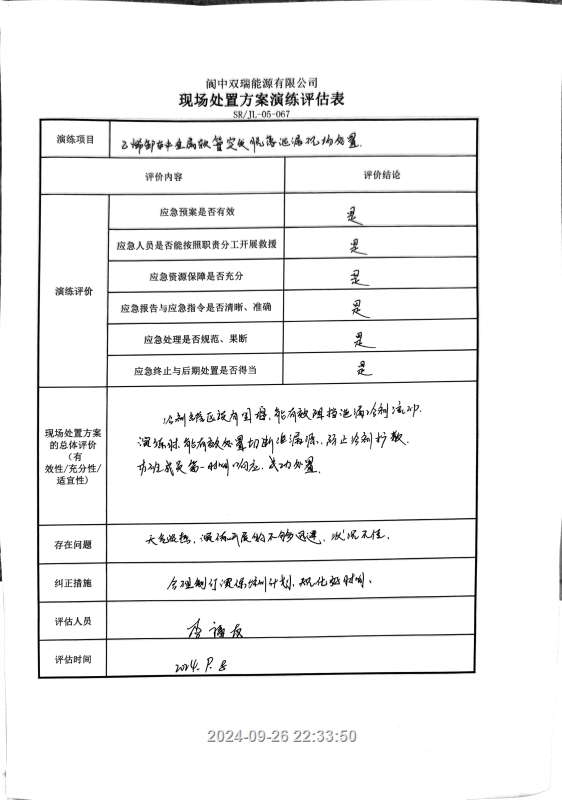 阆中双瑞能源有限公司
现场处置方案演练评估表
SR/JL-05-067
演练项目
乙烯卸车中金属软管突发脱落泄漏现场处置.
评价内容
评价结论
演练评价
应急预案是否有效
是
应急人员是否能按照职责分工开展救援
是
应急资源保障是否充分
是
应急报告与应急指令是否清晰、准确
是
应急处理是否规范、果断
是
应急终止与后期处置是否得当
是
现场处置方案
的总体评价
(有
效性/充分性/
适宜性)
冷剂罐区设有围堰,能有效阻挡泄漏冷剂流
演练时,能有效处置切断泄漏源,防止冷剂扩散.
当班成员第一时间响应,成功处置.
存在问题
天气炎热,演练开展的不够迅速,状况不佳.
纠正措施
合理制订演练培训计划,优化好时间.
评估人员
李
评估时间
2024.
2024-09-26 22:33:50